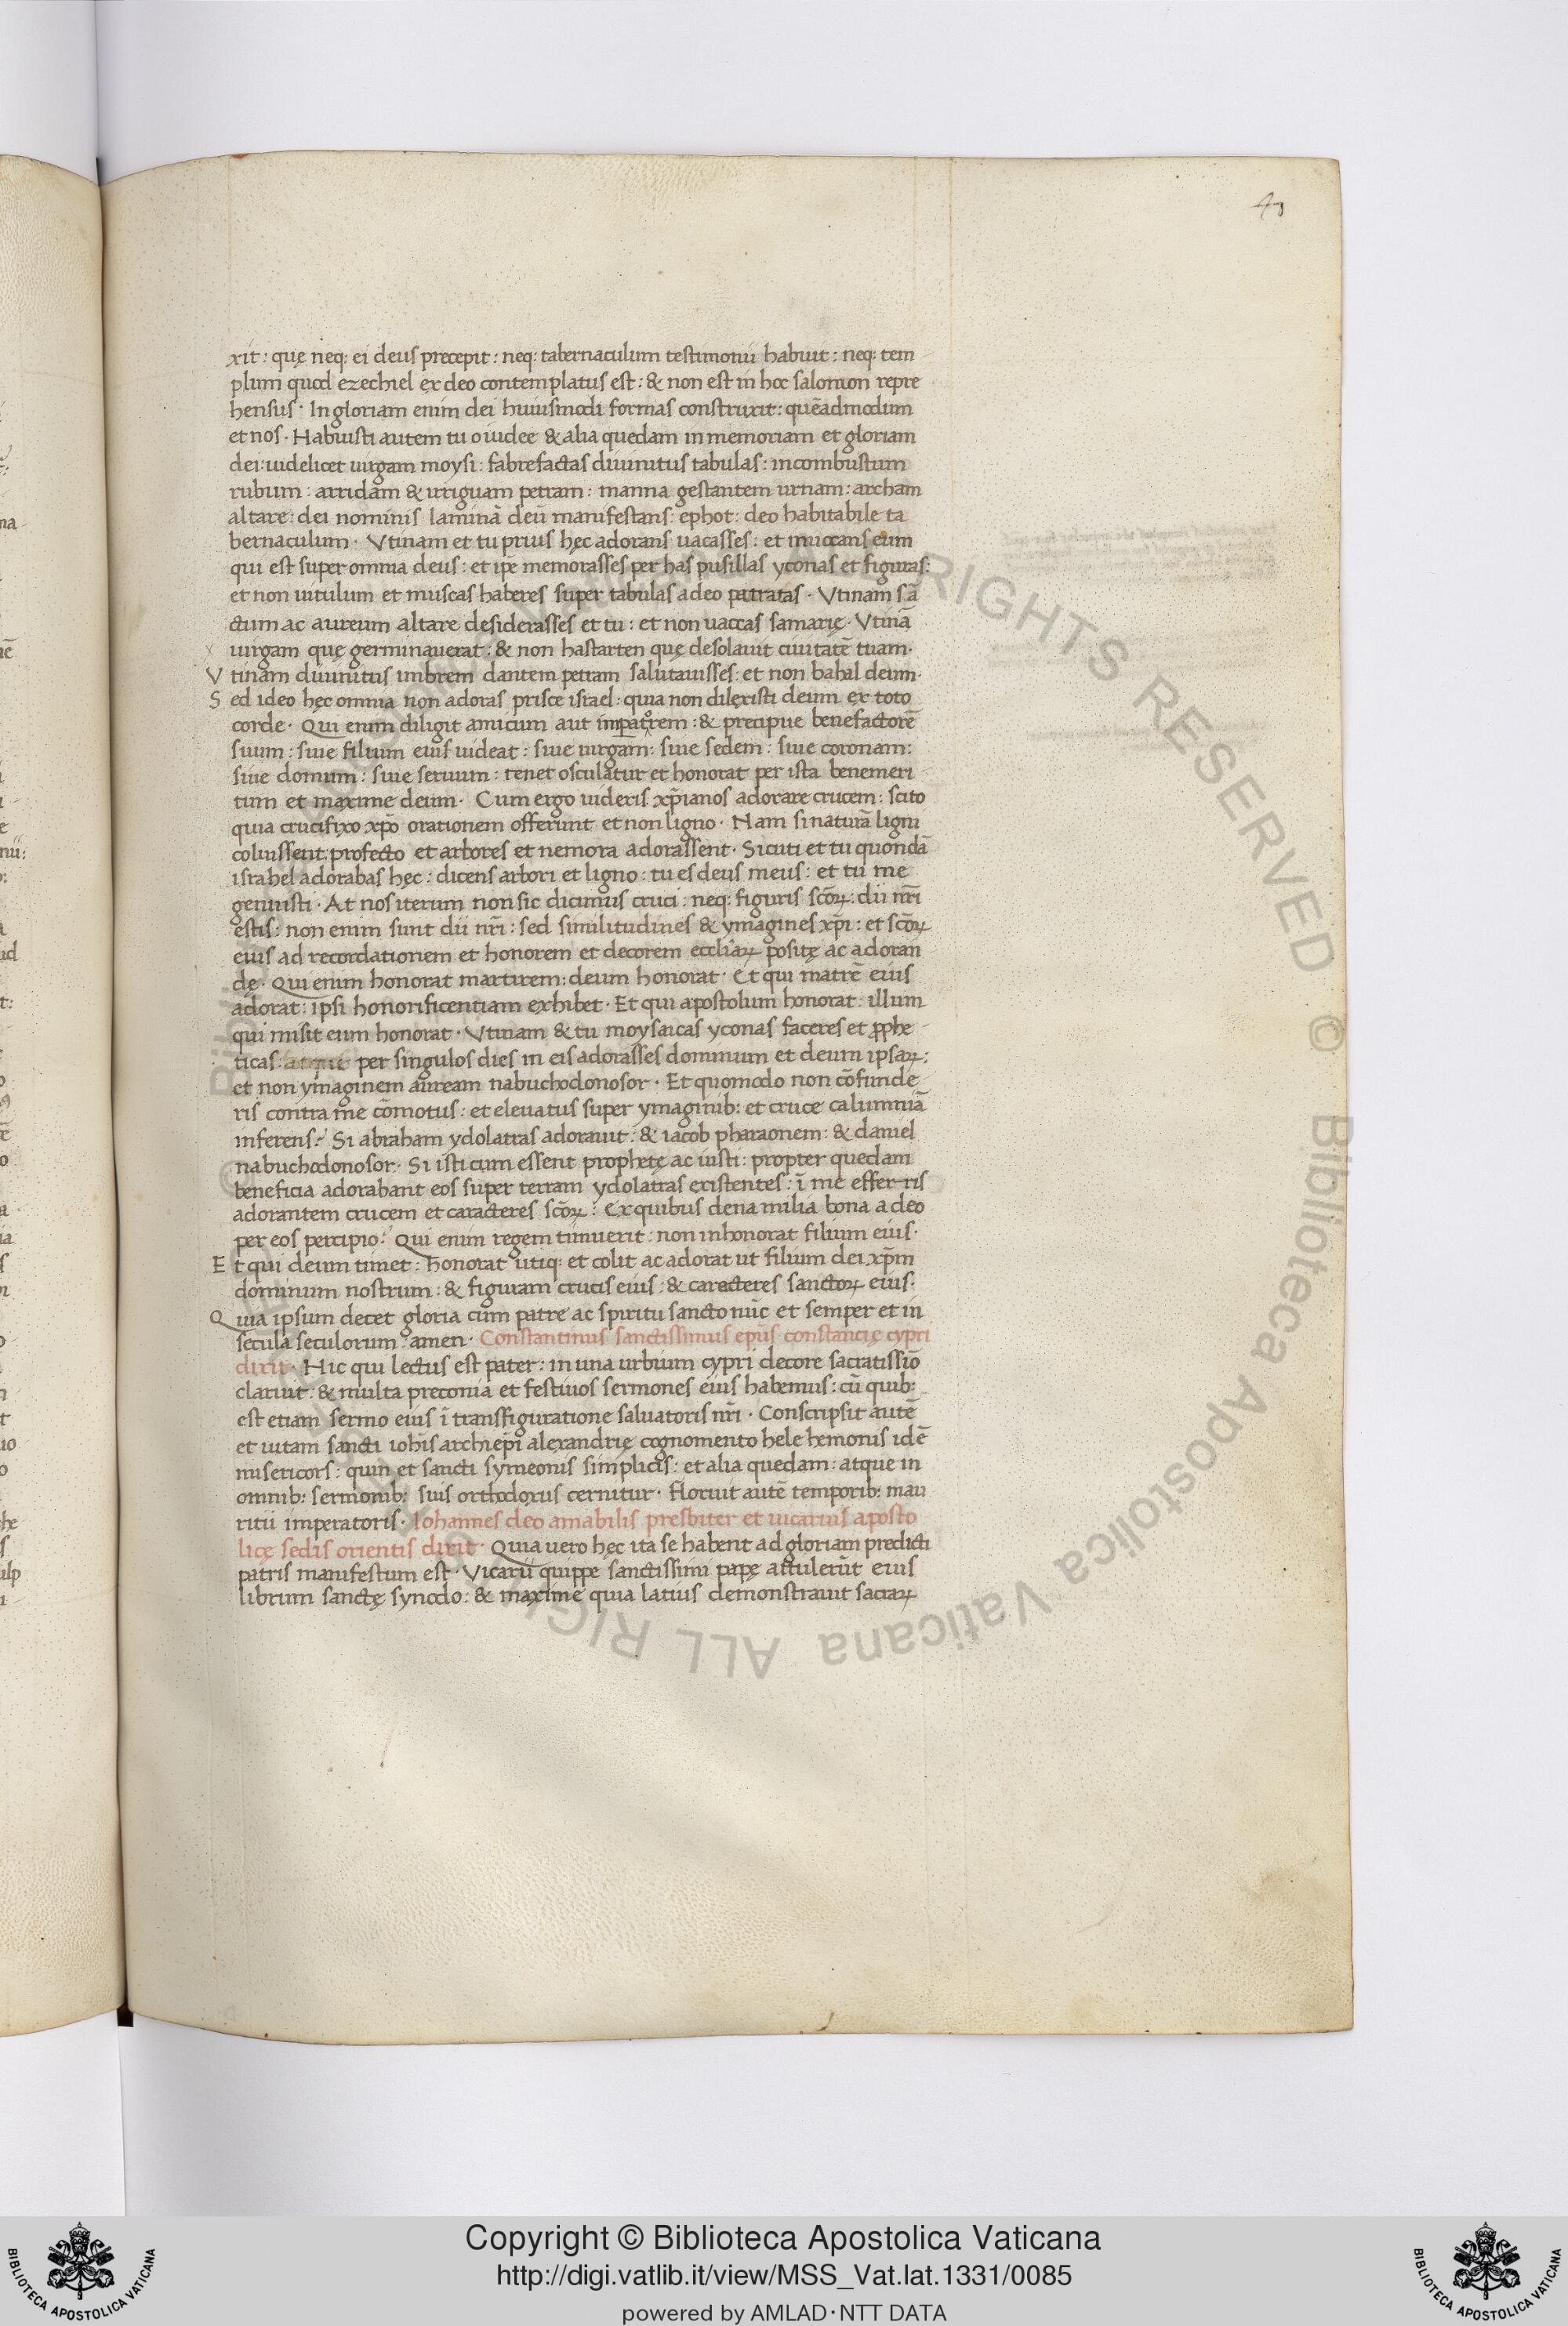 43
xit: quę neq: ei deus precepit: neq: tabernaculum testimonii habuit: neq: tem
plum quod ezechiel ex deo contemplatus est: & non est in hoc salomon repre
hensus · In gloriam enim dei huiusmodi formas construxit: quēadmodum
et nos · Habuisti autem tu o iudee & alia quedam in memoriam et gloriam
dei: uidelicet uirgam moysi: fabrefactas diuinitus tabulas: incombustum
rubum: arridam & irriguam petram: manna gestantem urnam: archam
altare: dei nominis laminā deū manifestans: ephot: deo habitabile ta
bernaculum · Vtinam et tu prius hęc adorans uacasses: et inuocans eum
qui est super omnia deus: et ipe memorasses per has pusillas yconas et figuras:
et non uitulum et muscas haberes super tabulas a deo patratas · Vtinam sā
ctum ac aureum altare desiderasses et tu: et non uaccas samarię · Vtinā
uirgam quę germinauerat: & non hastarten quę desolauit ciuitatē tuam·
Vtinam diuinitus imbrem dantem petram salutauisses: et non bahal deum·
Sed ideo hęc omnia non adoras prisce israel: quia non dilexisti deum ex toto
corde · Qui enim diligit amicum aut : & precipue benefactorē
suum: siue filium eius uideat: siue uirgam: siue sedem: siue coronam:
siue domum: siue seruum: tenet osculatur et honorat per ista benemeri
tum et maxime deum · Cum ergo uideris xp̄ianos adorare crucem: scito
quia crucifixo xp̄o orationem offerunt et non ligno · Nam si naturā ligni
coluissent: profecto et arbores et nemora adorassent · Sicuti et tu quondā
israhel adorabas hęc: dicens arbori et ligno: tu es deus meus: et tu me
genuisti · At nos iterum non sic dicimus cruci: neq: figuris scōꝝ: dii nr̄i
estis: non enim sunt dii nr̄i: sed similitudines & ymagines xp̄i: et scōꝝ
eius ad recordationem et honorem et decorem eccl̄iaꝝ positę ac adoran
dę · Qui enim honorat martirem: deum honorat · Et qui matrē eius
adorat: ipsi honorificentiam exhibet · Et qui apostolum honorat: illum
qui misit eum honorat · Vtinam & tu moysaicas yconas faceres et p̱phe
ticas: atque per singulos dies in eis adorasses dominum et deum ipsaꝝ:
et non ymaginem auream nabuchodonosor · Et quomodo non cōfunde
ris contra me cōmotus: et eleuatus super ymaginib: et cruce calumniā
inferens? Si abraham ydolatras adorauit: & iacob pharaonem: & daniel
nabuchodonosor · Si isti cum essent prophetę ac iusti: propter quedam
beneficia adorabant eos super terram ydolatras existentes: ī me efferris
adorantem crucem et caracteres scōꝝ: Ex quibus dena milia bona a deo
per eos percipio? Qui enim regem timuerit: non inhonorat filium eius·
Et qui deum timet: honorat utiq: et colit ac adorat ut filium dei xp̄m
dominum nostrum: & figuram crucis eius: & caracteres sanctoꝝ eius:
Quia ipsum decet gloria cum patre ac spiritu sancto nūc et semper et in
secula seculorum amen · Constantinus sanctissimus ep̄us constancię cypri
dixit · Hic qui lectus est pater: in una urbium cypri decore sacratissīo
claruit: & multa preconia et festiuos sermones eius habemus: cū quib:
est etiam sermo eius ī transfiguratione saluatoris nr̄i · Conscripsit autē
et uitam sancti ioh̄is archiep̄i alexandrię cognomento hele hemonis idē
misericors: quin et sancti symeonis simplicis: et alia quedam: atque in
omnib: sermonib: suis orthodoxus cernitur · Floruit autē temporib: mau
ritii imperatoris · Iohannes deo amabilis presbiter et uicarius aposto
licę sedis orientis dixit · Quia uero hęc ita se habent ad gloriam predicti
patris manifestum est · Vicarii quippe sanctissimi papę attulerūt eius
librum sanctę synodo: & maxime quia latius demonstrauit sacraꝝ
Copyright © Biblioteca Apostolica Vaticana
http://digi.vatlib.it/view/MSS_Vat.lat.1331/0085
powered by AMLAD·NTT DATA